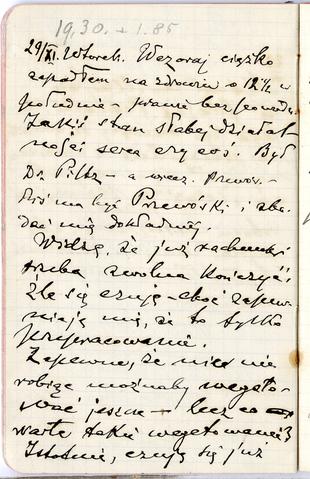 19,30. + 1.85
29/XI. Wtorek. Wczoraj ciężko
zapadłem na zdrowiu o 12½ w
południe – prawie bez powodu.
Jakiś stan słabej działal
ności serca czy coś. Był
Dr. Piltz – a wiecz. Przewós.–
Dziś ma być Przewóski i zba-
dać mię dokładniej.
Widzę, że już rachunki
trzeba zwolna kończyć;
Źle się czuję – choć zapew-
niają mię, że to tylko
przepracowanie.
Zapewne, że nic nie
robiąc możnaby wegeto-
wać jeszcze – lecz co
warte takie wegetowanie?
Istotnie, czuję się już